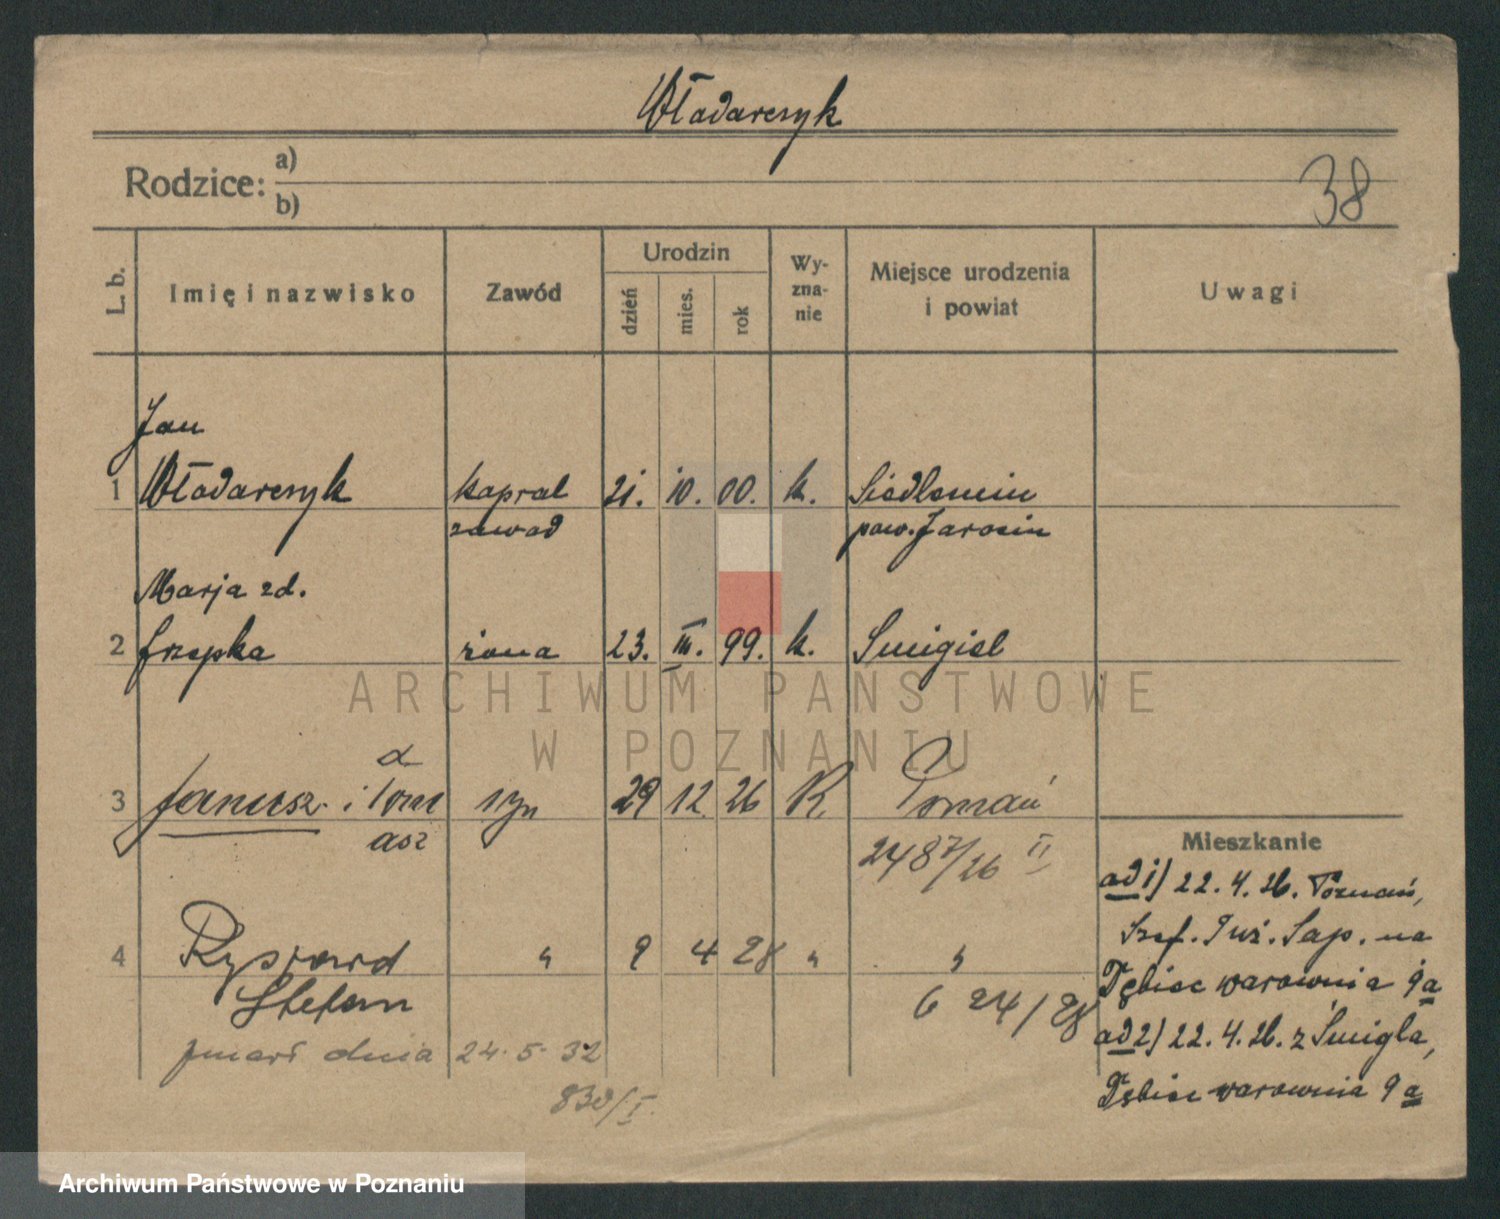 Włodarczyk
Rodzice: a)
b)
38
L. b.
Imię i nazwisko
Zawód
Urodzin
dzień
mies.
rok
Wy-
zna-
nie
Miejsce urodzenia
i powiat
Uwagi
Jan
1 Włodarczyk kapral 21. 10. 00. k. Siedlemin
zawod pow. Jarocin
Marja zd.
2 Grzepka żona 23. III. 99. k. Śmigiel
ARCHIWUM PAŃSTWOWE
W POZNANIU
3 Janusz i Tom syn 29 12 26 R. Poznań
asz
2487/26 II
4 Ryszard " 9 4 28 " "
Stefan
6 24/28
zmarł dnia 24.5.32
830/I.
Mieszkanie
ad 1) 22. 4. 26. Poznań,
Szef. Inż. Sap. na
Dębiec warownia 9a
ad 2) 22. 4. 26. z Śmigla,
Dębiec warownia 9a
Archiwum Państwowe w Poznaniu